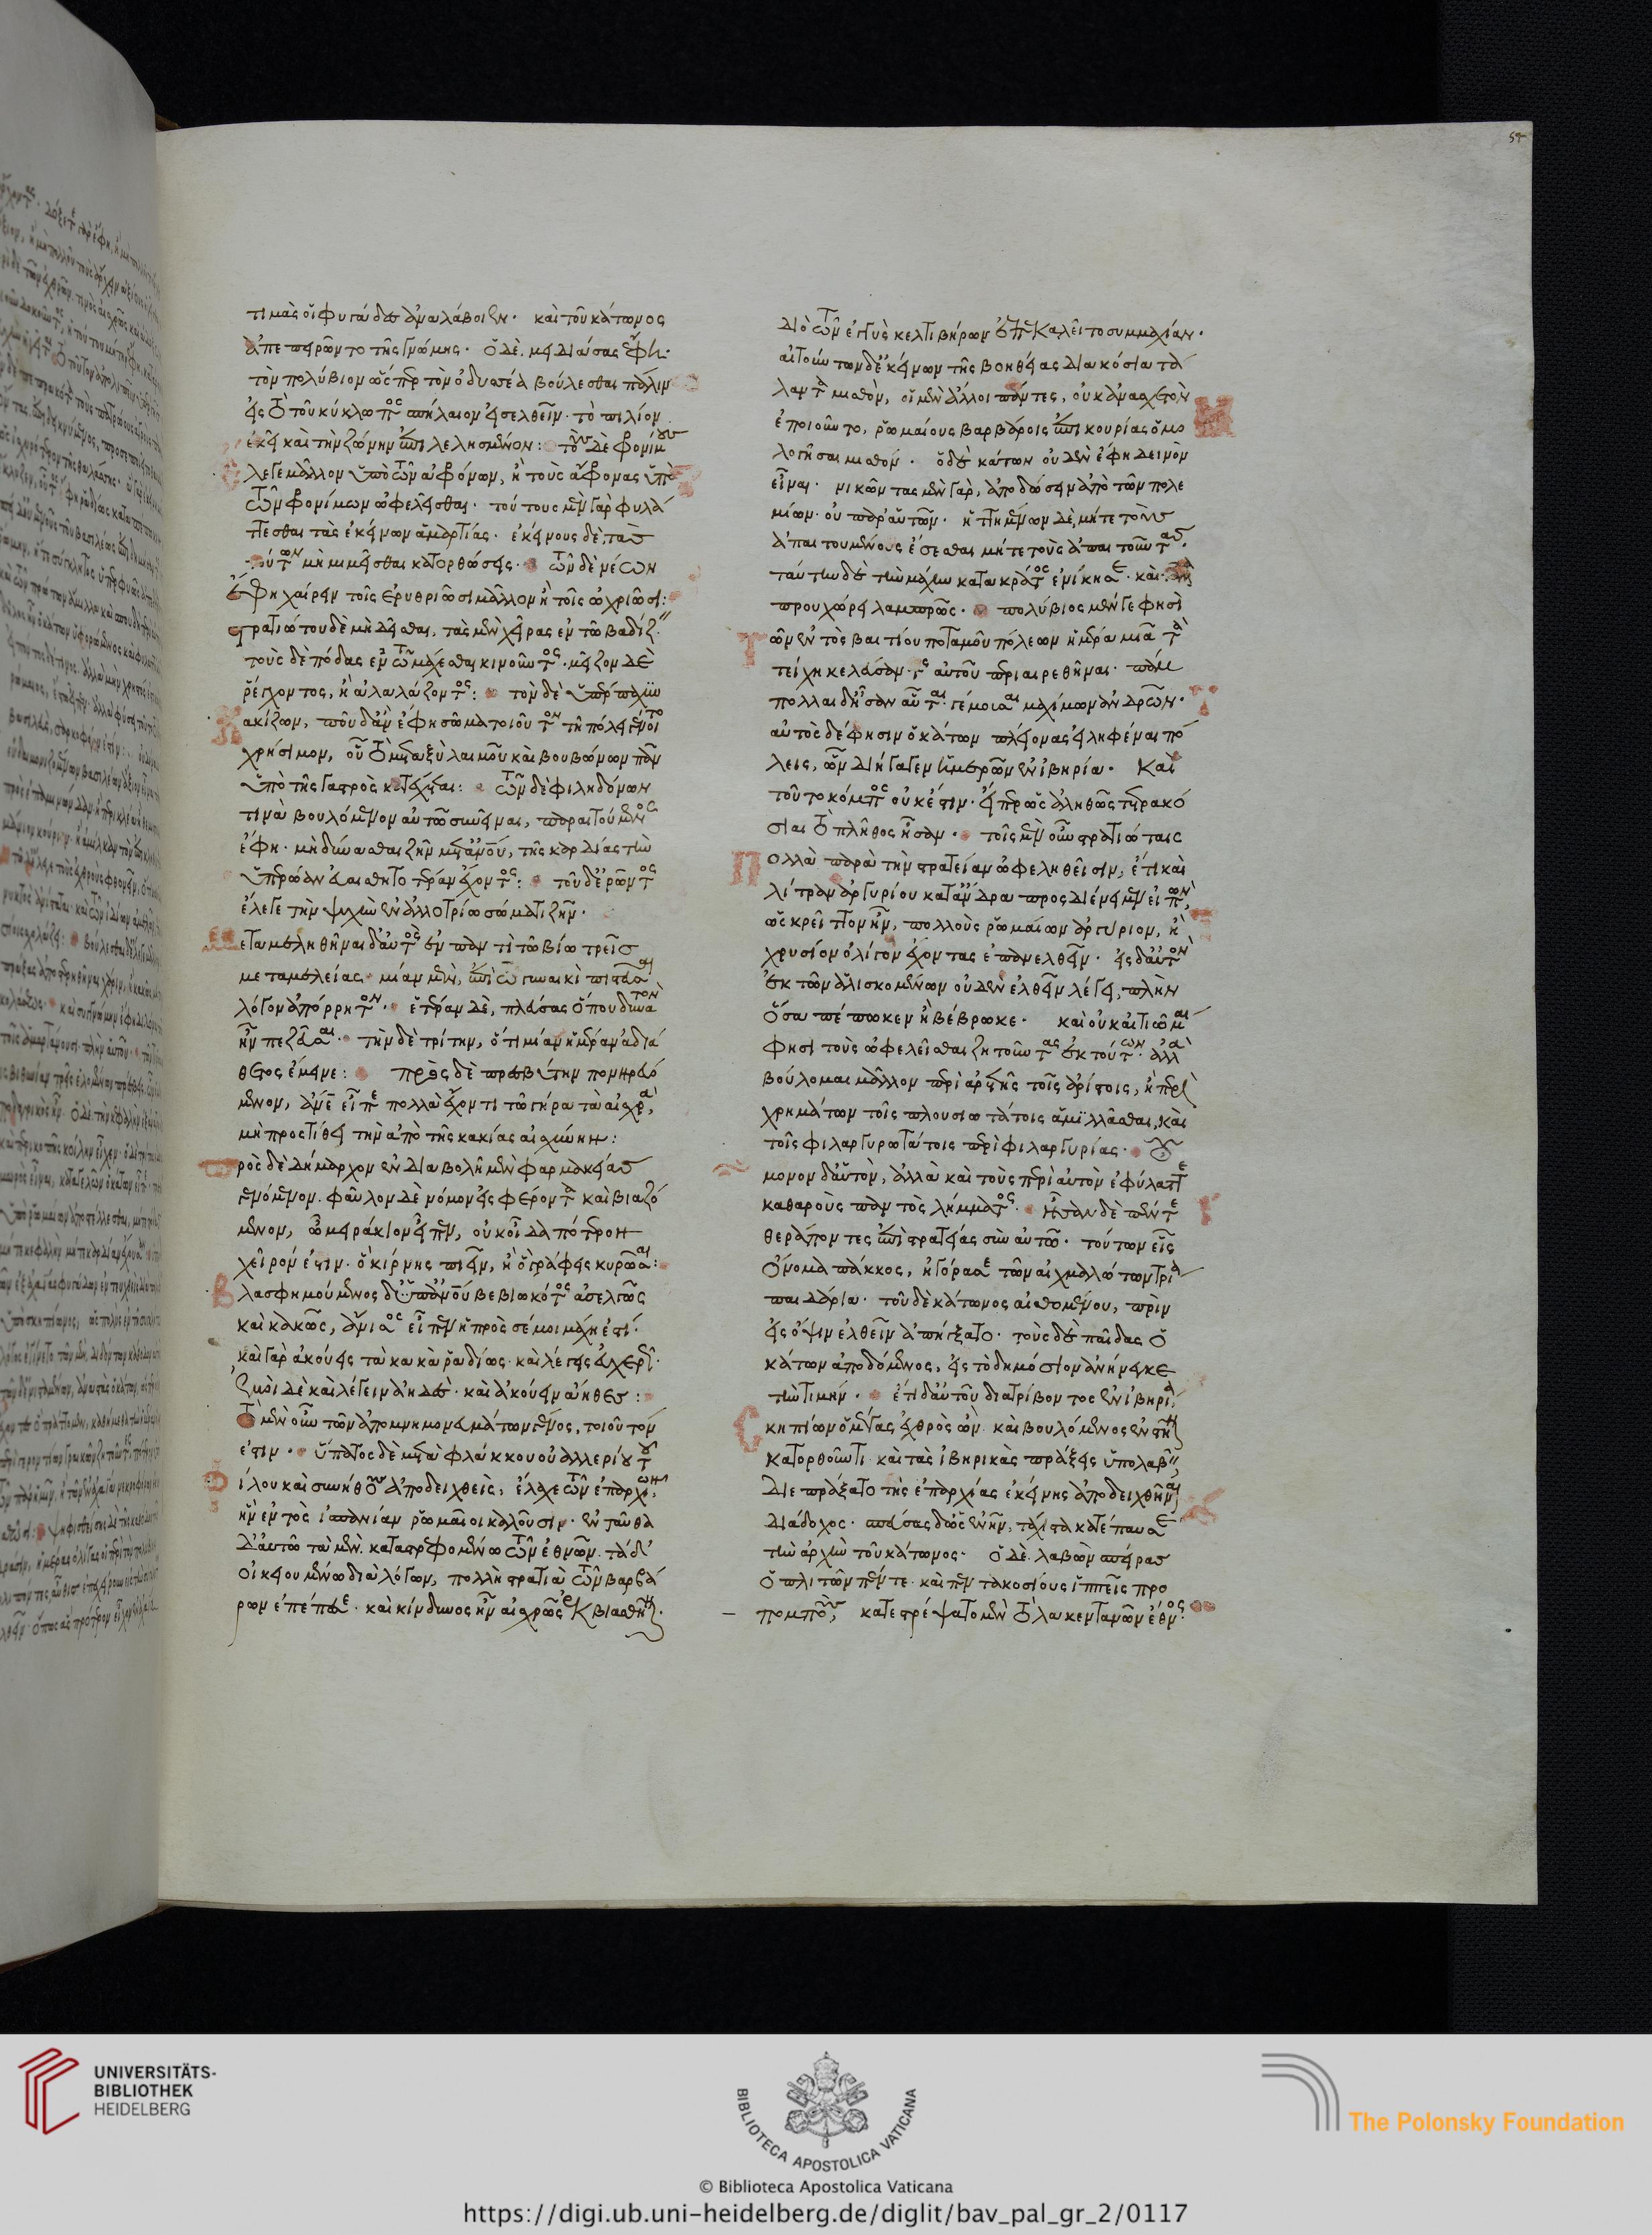 59
τιμὰς οἱ φυγάδες ἀναλάβοιεν. καὶ τοῦ κάτωνος
ἀπεπειρῶντο τῆς γνώμης. ὁ δὲ μειδιάσας ἔφη
τὸν πολύβιον ὥσπερ τὸν ὀδυσσέα βούλεσθαι πάλιν
εἰς τὸ τοῦ κύκλωπος σπήλαιον εἰσελθεῖν. τὸ πιλίον
ἐκεῖ καὶ τὴν ζώνην ἐπιλελησμένον: τοὺς δὲ φρονίμους
ἔλεγε μᾶλλον ὑπὸ τῶν ἀφρόνων, ἢ τοὺς ἄφρονας ὑπὸ
τῶν φρονίμων ὠφελεῖσθαι. τούτους μὲν γὰρ φυλά
ττεσθαι τὰς ἐκείνων ἁμαρτίας. ἐκείνους δὲ, τὰς
τούτων μὴ μιμεῖσθαι κατορθώσεις. τῶν δὲ νέων
ἔφη χαίρειν τοῖς ἐρυθριῶσι μᾶλλον ἢ τοῖς ὠχριῶσι:
στρατιώτου δὲ μὴ δεῖσθαι, τὰς μὲν χεῖρας ἐν τῶ βαδίζειν
τοὺς δὲ πόδας ἐν τῶ μάχεσθαι κινοῦντος. μεῖζον δὲ
ῥέγχοντος, ἢ ἀλαλάζοντος: τὸν δὲ ὑπέρπαχυν
κακίζων, ποῦ δ' ἂν ἔφη σῶμα τοιοῦτον τῆ πόλει γένοιτο
χρήσιμον, οὗ τὸ μεταξὺ λαιμοῦ καὶ βουβώνων πᾶν
ὑπὸ τῆς γαστρὸς κατέχεται: τῶν δὲ φιληδόνων
τινὰ βουλόμενον αὐτῶ συνεῖναι, παραιτούμενος
ἔφη. μὴ δύνασθαι ζῆν μετ' ἀνθρώπου, τῆς καρδίας τὴν
ὑπερώαν εὐαισθητοτέραν ἔχοντος: τοῦ δ' ἐρῶντος
ἔλεγε τὴν ψυχὴν ἐν ἀλλοτρίω σώματι ζῆν.
μεταμεληθῆναι δ' αὐτὸς ἐν παντὶ τῶ βίω τρεῖς
μεταμελείας. μίαν μὲν, ἐπὶ τῶ γυναικὶ πιστεῦσαι
λόγον ἀπόρρητον. ἑτέραν δὲ, πλεύσας ὅπου δυνατὸν
ἦν πεζεῦσαι. τὴν δὲ τρίτην, ὅτι μίαν ἡμέραν ἀδιά
θετος ἔμεινε: πρὸς δὲ πρεσβύτην πονηρευό
μενον, ἄνθρωπε εἶπε πολλὰ ἔχοντι τῶ γήρα τὰ αἰσχρὰ,
μὴ προστίθει τὴν ἀπὸ τῆς κακίας αἰσχύνην:
πρὸς δὲ δήμαρχον ἐν διαβολῆ μὲν φαρμακείας
γενόμενον. φαῦλον δὲ νόμον εἰσφέροντα καὶ βιαζό
μενον, ὦ μειράκιον εἶπεν, οὐκ οἶδα πότερον
χεῖρόν ἐστιν. ὃ κίρνης πιεῖν, ἢ ὃ γράφεις κυρῶσαι:
βλασφημούμενος δ' ὑπ' ἀνθρώπου βεβιωκότος ἀσελγῶς
καὶ κακῶς, ἄνισος εἶπεν ἡ πρὸς σέ μοι μάχη ἐστί.
καὶ γὰρ ἀκούεις τὰ κακὰ ῥαδίως. καὶ λέγεις εὐχερῶς.
ἐμοὶ δὲ καὶ λέγειν ἀηδὲς. καὶ ἀκούειν ἄηθες:
τὸ μὲν οὖν τῶν ἀπομνημονευμάτων γένος, τοιοῦτόν
ἐστιν. ὕπατος δὲ μετὰ φλάκκου οὐαλλερίου τοῦ
φίλου καὶ συνήθους ἀποδειχθεὶς, ἔλαχε τῶν ἐπαρχιῶν
ἣν ἐντὸς ἱσπανίαν ῥωμαῖοι καλοῦσιν. ἐνταῦθα
δ' αὐτῶ τὰ μὲν. καταστρεφομένω τῶν ἐθνῶν. τὰ δ'
οἰκειουμένω διὰ λόγων, πολλὴ στρατιὰ τῶν βαρβά
ρων ἐπέπεσε. καὶ κίνδυνος ἦν αἰσχρῶς ἐκβιασθῆναι.
διὸ τῶν ἐγγὺς κελτιβήρων ἐπεκαλεῖτο συμμαχίαν.
αἰτούντων δ' ἐκείνων τῆς βοηθείας διακόσια τά
λαντα μισθὸν, οἱ μὲν ἄλλοι πάντες, οὐκ ἀνασχετὸν
ἐποιοῦντο, ῥωμαίους βαρβάροις ἐπικουρίας ὁμο
λογῆσαι μισθόν. ὁ δὲ κάτων οὐδὲν ἔφη δεινὸν
εἶναι. νικῶντας μὲν γὰρ, ἀποδώσειν ἀπὸ τῶν πολε
μίων. οὐ παρ' αὑτῶν. ἡττημένων δὲ, μήτε τοὺς
ἀπαιτουμένους ἔσεσθαι μήτε τοὺς ἀπαιτοῦντας.
ταύτην δὲ τὴν μάχην κατακράτος ἐνίκησε. καὶ τἆλλα
προυχώρει λαμπρῶς. πολύβιος μέν γε φησὶ
τῶν ἐντὸς βαιτίου ποταμοῦ πόλεων ἡμέρα μιᾶ τὰ
τείχη κελεύσαντος αὐτοῦ περιαιρεθῆναι. πάμ
πολλαι δ' ἦσαν αὗται. γέμουσαι μαχίμων ἀνδρῶν.
αὐτὸς δέ φησιν ὁ κάτων πλείονας εἰληφέναι πό
λεις, ὧν διήγαγεν ἡμερῶν ἐν ἰβηρία. καὶ
τοῦτο κόμπος οὐκ ἔστιν. εἴπερ ὡς ἀληθῶς τετρακό
σιαι τὸ πλῆθος ἦσαν. τοῖς μὲν οὖν στρατιώταις
πολλὰ παρὰ τὴν στρατείαν ὠφεληθεῖσιν, ἔτι καὶ
λίτραν ἀργυρίου κατ' ἄνδρα προσδιένειμεν εἰπὼν,
ὡς κρεῖττον ἦν, πολλοὺς ῥωμαίων ἀργύριον, ἢ
χρυσίον ὀλίγους ἔχοντας ἐπανελθεῖν. εἰς δ' αὐτὸν
ἐκ τῶν ἁλισκομένων οὐδὲν ἐλθεῖν λέγει, πλὴν
ὅσα πέπωκεν ἢ βέβρωκε. καὶ οὐκ αἰτιῶμαι
φησι τοὺς ὠφελεῖσθαι ζητοῦντας ἐκ τούτων. ἀλλὰ
βούλομαι μᾶλλον περὶ ἀρετῆς τοῖς ἀρίστοις, ἢ περὶ
χρημάτων τοῖς πλουσιωτάτοις ἁμιλλᾶσθαι, καὶ
τοῖς φιλαργυρωτάτοις περὶ φιλαργυρίας. οὐ
μόνον δ' αὑτὸν, ἀλλὰ καὶ τοὺς περὶ αὐτὸν ἐφύλαττε
καθαροὺς παντὸς λήμματος. ἦσαν δὲ πέντε
θεράποντες ἐπὶ στρατείας σὺν αὐτῶ. τούτων εἷς
ὄνομα πάκκος, ἠγόρασε τῶν αἰχμαλώτων τρία
παιδάρια. τοῦ δὲ κάτωνος αἰσθομένου, πρὶν
εἰς ὄψιν ἐλθεῖν ἀπήγξατο. τοὺς δὲ παῖδας ὁ
κάτων ἀποδόμενος, εἰς τὸ δημόσιον ἀνήνεγκε
τὴν τιμήν. ἔτι δ' αὐτοῦ διατρίβοντος ἐν ἰβηρία,
σκηπίων ὁ μέγας ἐχθρὸς ὢν. καὶ βουλόμενος ἐνστῆναι
κατορθοῦντι. καὶ τὰς ἰβηρικὰς πράξεις ὑπολαβεῖν,
διεπράξατο τῆς ἐπαρχίας ἐκείνης ἀποδειχθῆναι
διάδοχος. σπεύσας δ' ὡς ἐνῆν, τάχιστα κατέπαυσε
τὴν ἀρχὴν τοῦ κάτωνος. ὁ δὲ. λαβὼν σπείρας
ὁπλιτῶν πέντε. καὶ πεντακοσίους ἱππεῖς προ
πομποὺς, κατεστρέψατο μὲν τὸ λακεντανῶν ἔθνος.
UNIVERSITÄTS-
BIBLIOTHEK
HEIDELBERG
BIBLIOTECA APOSTOLICA VATICANA
The Polonsky Foundation
© Biblioteca Apostolica Vaticana
https://digi.ub.uni-heidelberg.de/diglit/bav_pal_gr_2/0117